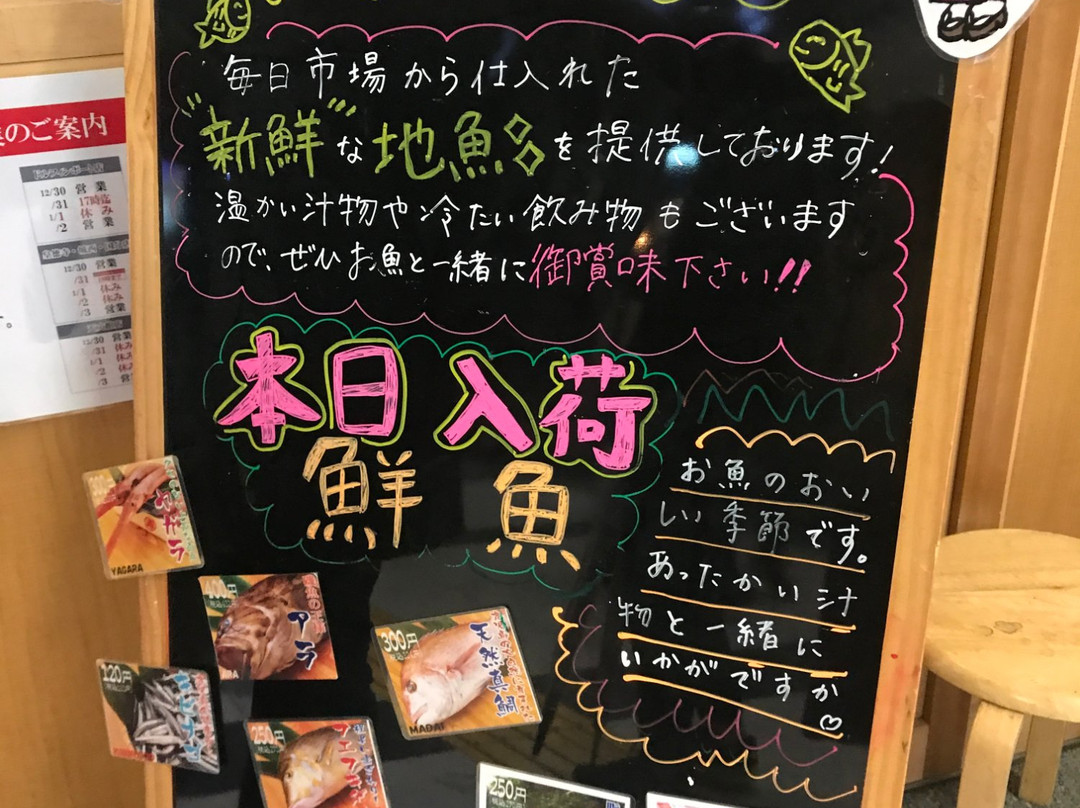 毎日市場から仕入れた
"新鮮"な地魚を提供しております!
温かい汁物や冷たい飲み物もございます
ので、ぜひお魚と一緒に御賞味下さい!!
本日入荷
鮮魚
お魚のおい
しい季節です。
あったかい汁
物と一緒に
いかがですか♡
のご案内
12/30 営業
/31 17時迄
1/1 休み
/2 営業
12/30 営業
/31
1/1 休み
/2 休み
/3 営業
12/30 営業
/31 休み
1/1 休み
/2 休み
/3 営
ヤガラ
YAGARA
400円
アラ
300円
天然真鯛
MADAI
120円
きびなご
250円
フエフキダイ
250円